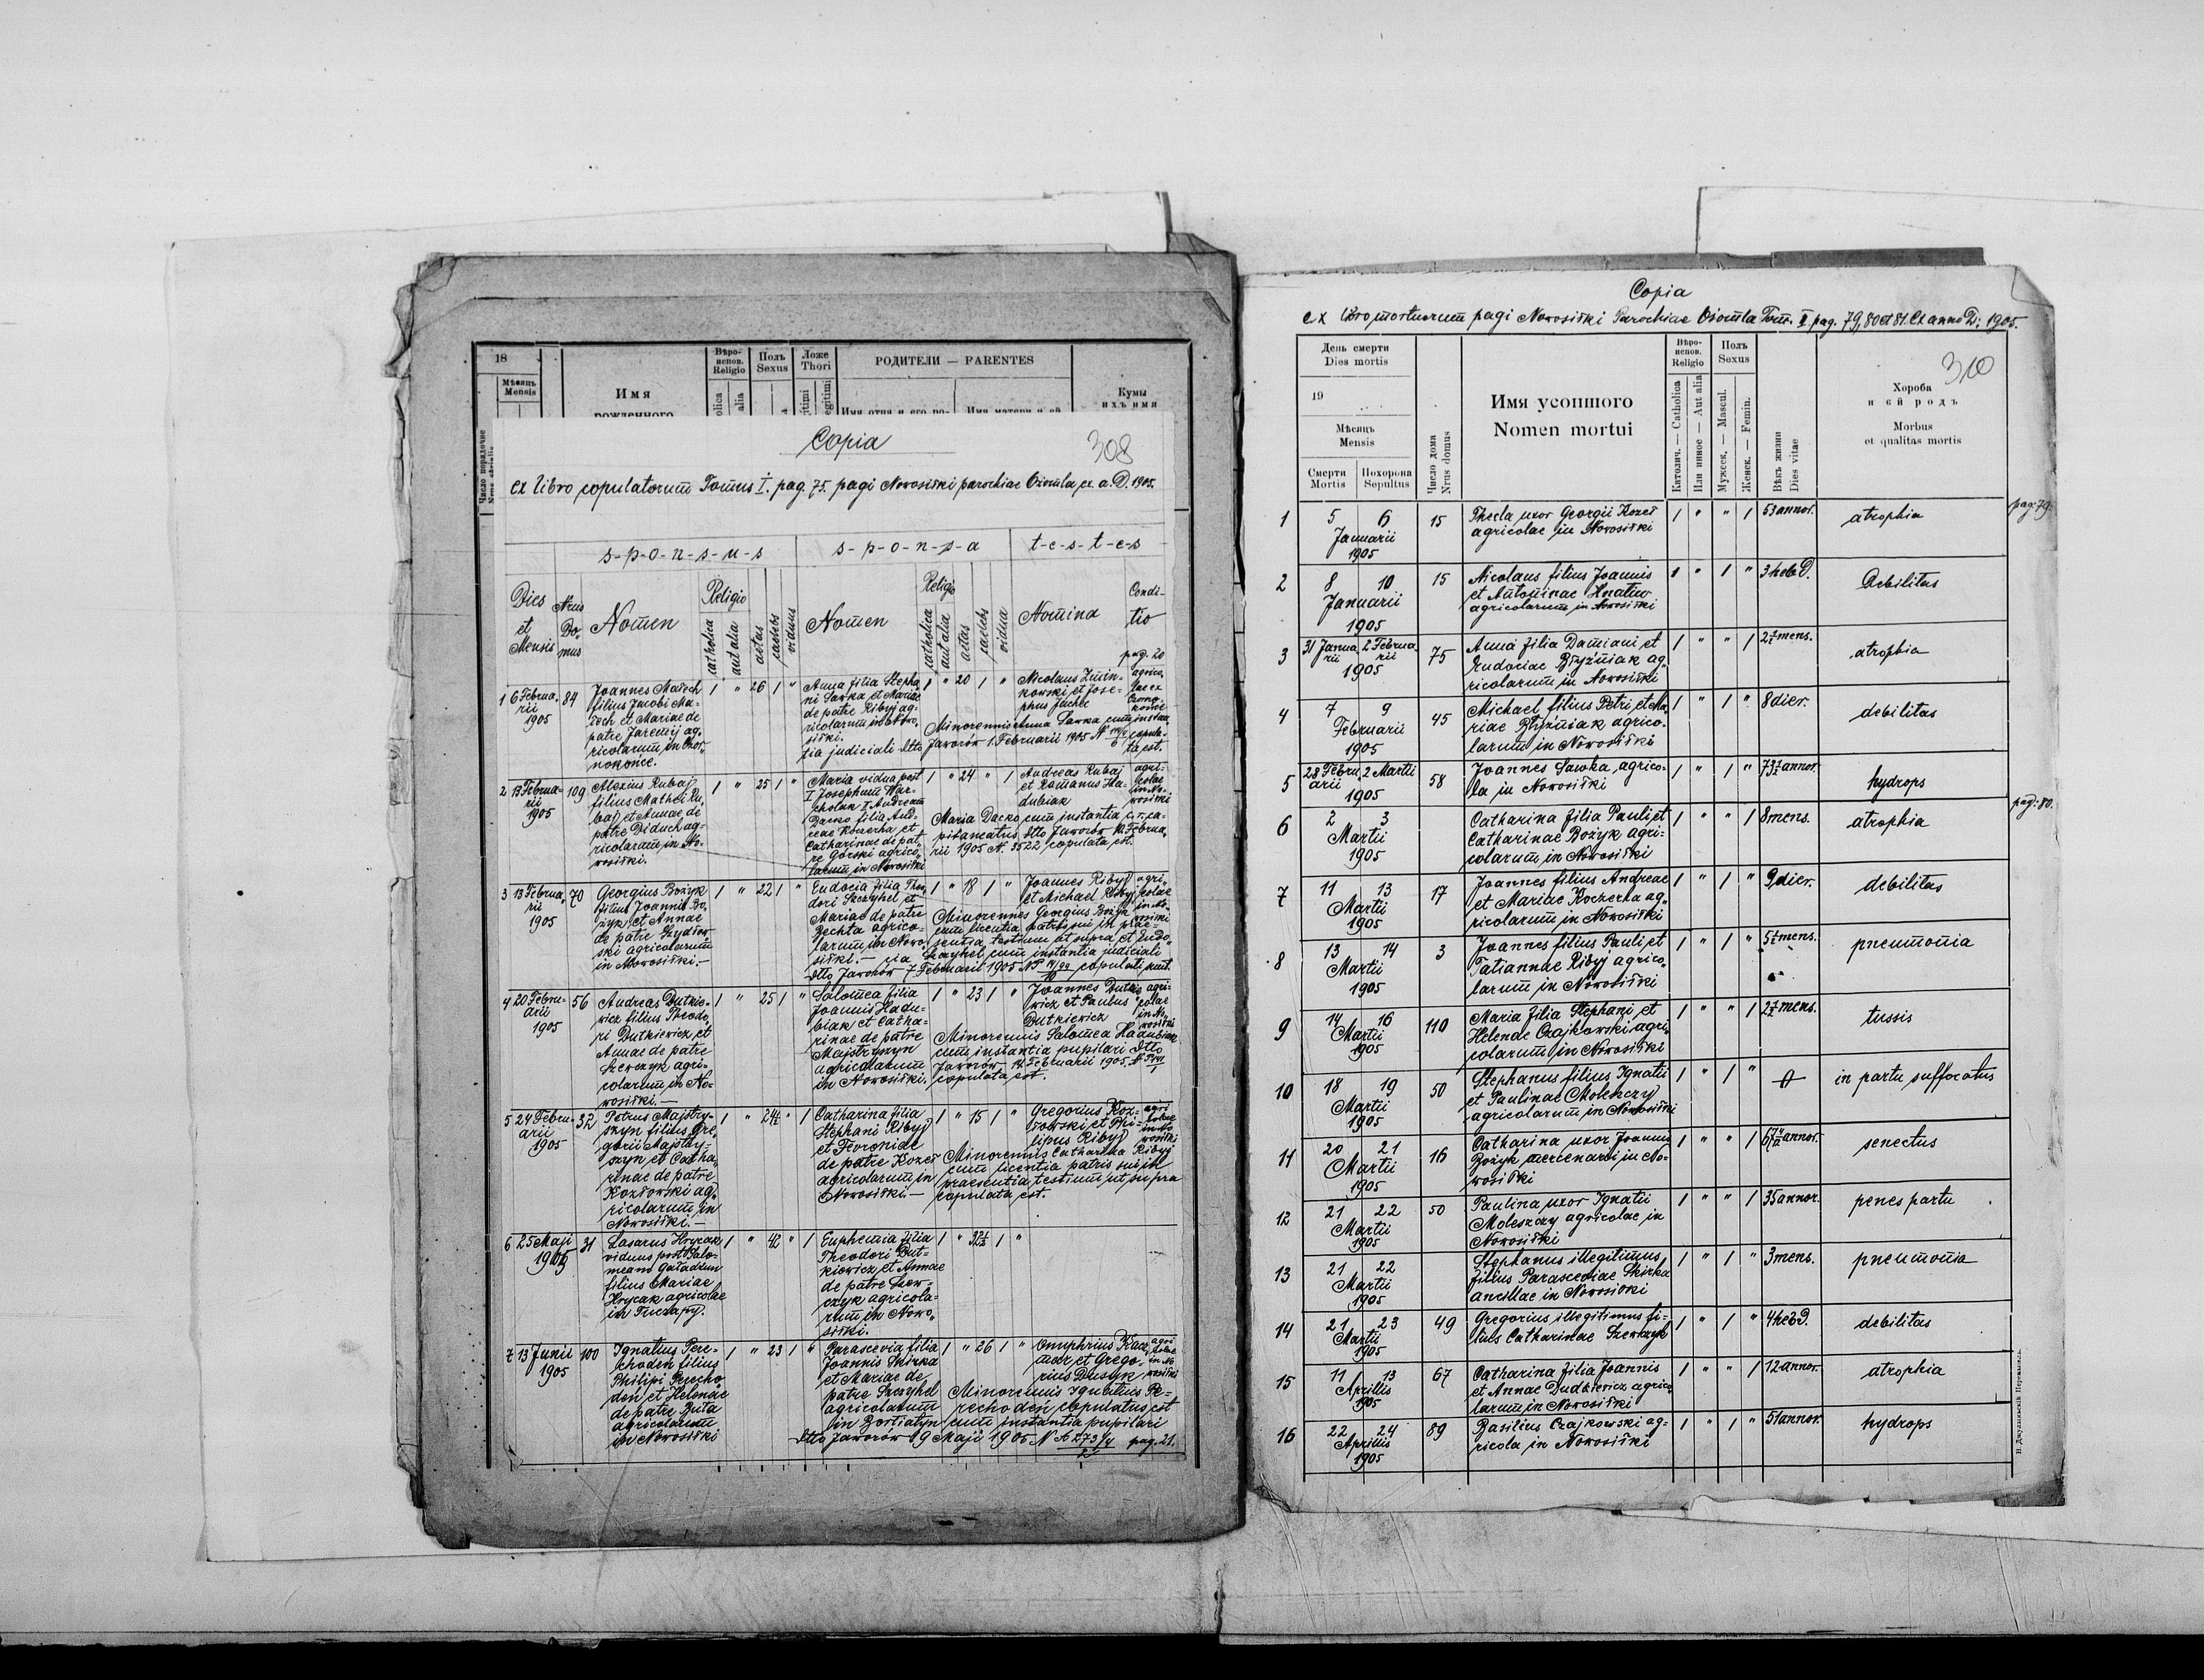 18
Мѣсяць
Mensis
Имя
рожденного
Вѣро-
испов.
Religio
Полъ
Sexus
Ложе
Thori
РОДИТЕЛИ — PARENTES
Кумы
ихъ имя
Число порядочне
Copia
308
ex libro copulatorum Tomus I. pag. 75. pagi Nowosiłki parochiae Ożomla ex a. D. 1905.
s-p-o-n-s-u-s
s-p-o-n-s-a
t-e-s-t-e-s
Dies
et
Mensis
Nrus
Do-
mus
Nomen
Religio
catholica
aut alia
aetas
caelebs
viduus
Nomen
Religio
catholica
aut alia
aetas
caelebs
vidua
Nomina
Condi-
tio
pag. 20
1 6 Februa-
rii
1905
84
Joannes Małech
filius Jacobi Ma-
łech et Mariae de
patre Jaremij ag-
ricolarum in Czor-
nokońce.
1 " 26 1 "
Anna filia Stepha-
ni Sawka et Mariae
de patre Ribyj ag-
ricolarum in Nowo-
siłki.
1 " 20 1 "
Nicolaus Zmin-
kowski et Jose-
phus
Minorennis Anna Sawka cum instan-
tia judiciali dtto Jaworów 1. Februarii 1905 copula-
ta est.
2 13 Februa-
rii
1905
109
Alexius Rubaj
filius Mathei Ru-
baj et Annae de
patre Diduch ag-
ricolarum in No-
wosiłki.
1 " 25 1 "
Maria vidua post
I Josephum War-
cholak II Andream
Dacko filia And-
reae Koczerha et
Catharinae de pat-
re Górski agrico-
larum in Nowosiłki
1 " 24 " 1
Andreas Rubaj
et Romanus Ha-
dubiak
agri-
colae
in No-
wosiłki
Maria Dacko cum instantia c. r. ca-
pitaneatus dtto Jaworów 10 Februa-
rii 1905 N. 3522 copulata est.
3 13 Februa-
rii
1905
70
Georgius Bożyk
filius Joannis Bo-
żyk et Annae
de patre Szydłow-
ski agricolarum
in Nowosiłki.—
1 " 22 1 "
Eudocia filia Theo-
dori Szczyhel et
Mariae de patre
Zechta agrico-
larum in Nowo-
siłki.—
1 " 18 1 "
Joannes Ribyj
et Michael Ribyj
agri-
colae
in No-
wosiłki
Minorennes Georgius Bożyk
cum licentia patris sui in prae-
sentia testium ut supra et Eudo-
cia Szczyhel cum instantia judiciali
dtto Jaworów 7 Februarii 1905 copulati sunt.
4 20 Febru-
arii
1905
56
Andreas Dutkie-
wicz filius Theodo-
ri Dutkiewicz et
Annae de patre
Szewczyk agri-
colarum in No-
wosiłki.—
1 " 25 1 "
Salomea filia
Joannis Hadu-
biak et Catha-
rinae de patre
Majstryszyn
agricolarum
in Nowosiłki.
1 " 23 1 "
Joannes Dutkie-
wicz et Paulus
Dutkiewicz
agri-
colae
in No-
wosiłki
Minorennis Salomea Hadubiak
cum instantia pupilari dtto
Jaworów 14 Februarii 1905
copulata est.
5 24 Febru-
arii
1905
32
Petrus Majstry-
szyn filius Gre-
gorii Majstry-
szyn et Catha-
rinae de patre
Kozłowski ag-
ricolarum in
Nowosiłki.—
1 " 24½ " 1
Catharina filia
Stephani Ribyj
et Fevronide
de patre Kozeł
agricolarum in
Nowosiłki.—
1 " 15 1 "
Gregorius Koz-
łowski et Phi-
lipus Ribyj
agri-
colae
in No-
wosiłki
Minorennis Catharina Ribyj
cum licentia patris sui in
praesentia testium ut supra
copulata est.
6 25 Maji
1905
31
Lasarus Hrycak
viduus post Salo-
meam Gaładzun
filius Mariae
Hrycak agricolae
in Tuczapy.
1 " 42 " 1
Euphemia filia
Theodori Dut-
kiewicz et Annae
de patre Szew-
czyk agricola-
rum in Nowo-
siłki.
1 " 32½ 1 "
7 13 Junii
1905
100
Ignatius Pere-
choden filius
Philipi Perecho-
den et Helenae
de patre Buła
agricolarum
in Nowosiłki
1 " 23 1 "
Parascevia filia
Joannis Skirka
et Mariae de
patre Szczyhel
agricolarum
in Bortiatyn
1 " 26 1 "
Onuphrius Kacz-
mar et Grego-
rius Dusyk
agri-
colae
in No-
wosiłki
Minorennis Ignatius Pe-
rechoden copulatus est
cum instantia pupilari
dtto Jaworów 19 Maji 1905 pag. 21.
Copia
ex libro mortuorum pagi Nowosiłki Parochiae Ożomla Tom. II pag. 79, 80 et 81. Ex anno D: 1905.
310
День смерти
Dies mortis
19
Мѣсяць
Mensis
Смерти
Mortis
Похорона
Sepultus
Число дома
Nrus domus
Имя усопшого
Nomen mortui
Вѣро-
испов.
Religio
Католич. — Catholica
Или инное — Aut alia
Полъ
Sexus
Мужеск. — Mascul.
Женск. — Femin.
Вѣкъ жизни
Dies vitae
Хороба
и єй родъ
Morbus
et qualitas mortis
pag. 79.
1
5 6
Januarii
1905
15
Thecla uxor Georgii Kozeł
agricolae in Nowosiłki
1 " " 1
53 annor.
atrophia
2
8 10
Januarii
1905
15
Nicolaus filius Joannis
et Antoninae Hnatiw
agricolarum in Nowosiłki
1 " 1 "
3 hebd.
Debilitas
3
31 Janua-
rii
2 Februa-
rii
1905
75
Anna filia Damiani et
Eudociae Błyźniak ag-
ricolarum in Nowosiłki
1 " " 1
2½ mens.
atrophia
4
7 9
Februarii
1905
45
Michael filius Petri et Ma-
riae Błyźniak agrico-
larum in Nowosiłki
1 " 1 "
8 dier.
debilitas
5
28 Febru-
arii
2 Martii
1905
58
Joannes Sawka, agrico-
la in Nowosiłki
1 " 1 "
73½ annor.
hydrops
pag. 80.
6
2 3
Martii
1905
Catharina filia Pauli et
Catharinae Bożyk agri-
colarum in Nowosiłki
1 " " 1
8 mens.
atrophia
7
11 13
Martii
1905
17
Joannes filius Andreae
et Mariae Koczerha ag-
ricolarum in Nowosiłki
1 " 1 "
9 dier.
debilitas
8
13 14
Martii
1905
3
Joannes filius Pauli et
Tatiannae Ribyj agrico-
larum in Nowosiłki
1 " 1 "
5½ mens.
pneumonia
9
14 16
Martii
1905
110
Maria filia Stephani et
Helenae Czajkowski agri-
colarum in Nowosiłki
1 " " 1
2½ mens.
tussis
10
18 19
Martii
1905
50
Stephanus filius Ignatii
et Paulinae Moleszczy
agricolarum in Nowosiłki
1 " 1 "
0
in partu suffocatus
11
20 21
Martii
1905
116
Catharina uxor Joannis
Bożyk mercenarii in No-
wosiłki
1 " " 1
annor.
senectus
12
21 22
Martii
1905
50
Paulina uxor Ignatii
Moleszczy agricolae in
Nowosiłki
1 " " 1
35 annor.
penes partu
13
21 22
Martii
1905
Stephanus illegitimus,
filius Parasceviae Skirka
ancillae in Nowosiłki
1 " 1 "
3 mens.
pneumonia
14
21 23
Martii
1905
49
Gregorius illegitimus fi-
lius Catharinae Szewczyk
1 " 1 "
4 hebd.
debilitas
15
11 13
Aprilis
1905
67
Catharina filia Joannis
et Annae Dudkiewicz agrico-
larum in Nowosiłki
1 " " 1
12 annor.
atrophia
16
22 24
Aprilis
1905
89
Basilius Czajkowski ag-
ricola in Nowosiłki
1 " 1 "
51 annor.
hydrops